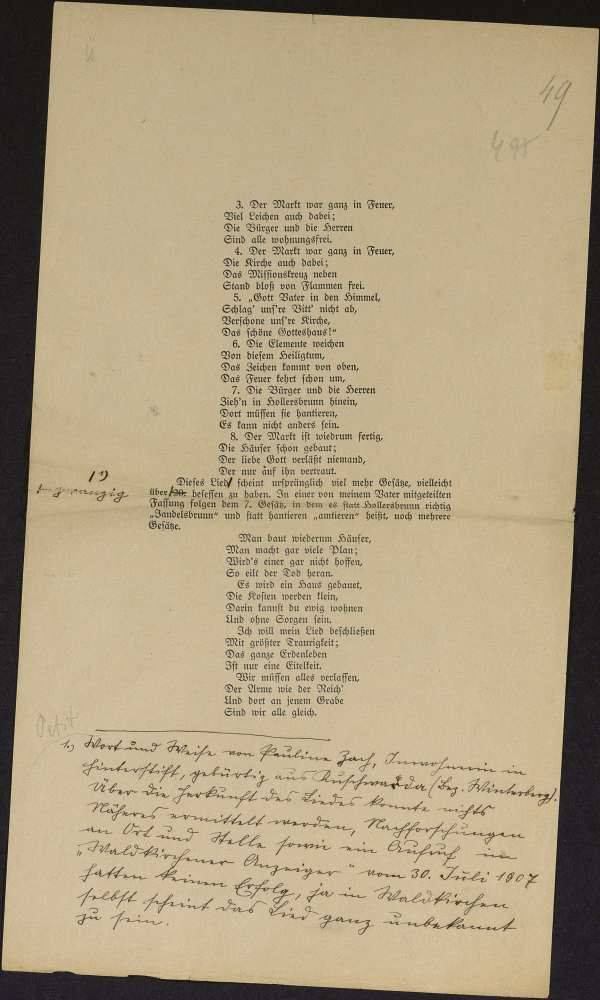 49
495
3. Der Markt war ganz in Feuer,
Viel Leichen auch dabei;
Die Bürger und die Herren
Sind alle wohnungsfrei.
4. Der Markt war ganz in Feuer,
Die Kirche auch dabei;
Das Missionskreuz neben
Stand bloß von Flammen frei.
5. „Gott Vater in den Himmel,
Schlag' uns're Bitt' nicht ab,
Verschone uns're Kirche,
Das schöne Gotteshaus!“
6. Die Elemente weichen
Von diesem Heiligtum,
Das Zeichen kommt von oben,
Das Feuer kehrt schon um,
7. Die Bürger und die Herren
Zieh'n in Hollersbrunn hinein,
Dort müssen sie hantieren,
Es kann nicht anders sein.
8. Der Markt ist wiedrum fertig,
Die Häuser schon gebaut;
Der liebe Gott verläßt niemand,
Der nur auf ihn vertraut.
1)
Dieses Lied scheint ursprünglich viel mehr Gesätze, vielleicht
zwanzig
über 20, besessen zu haben. In einer von meinem Vater mitgeteilten
Fassung folgen dem 7. Gesätz, in dem es statt Hollersbrunn richtig
„Jandelsbrunn“ und statt hantieren „amtieren“ heißt, noch mehrere
Gesätze.
Man baut wiederum Häuser,
Man macht gar viele Plan;
Wird's einer gar nicht hoffen,
So eilt der Tod heran.
Es wird ein Haus gebauet,
Die Kosten werden klein,
Darin kannst du ewig wohnen
Und ohne Sorgen sein.
Ich will mein Lied beschließen
Mit größter Traurigkeit;
Das ganze Erdenleben
Ist nur eine Eitelkeit.
Wir müssen alles verlassen,
Der Arme wie der Reich'
Und dort an jenem Grabe
Sind wir alle gleich.
Petit
1.) Wort und Weise von Pauline Zach, Inwohnerin in
Hinterstift, gebürtig aus Kuschwarda (Bez. Winterberg).
Über die Herkunft des Liedes konnte nichts
Näheres ermittelt werden, Nachforschungen
an Ort und Stelle sowie ein Aufruf im
„Waldkirchener Anzeiger“ vom 30. Juli 1907
hatten keinen Erfolg, ja in Waldkirchen
selbst scheint das Lied ganz unbekannt
zu sein.